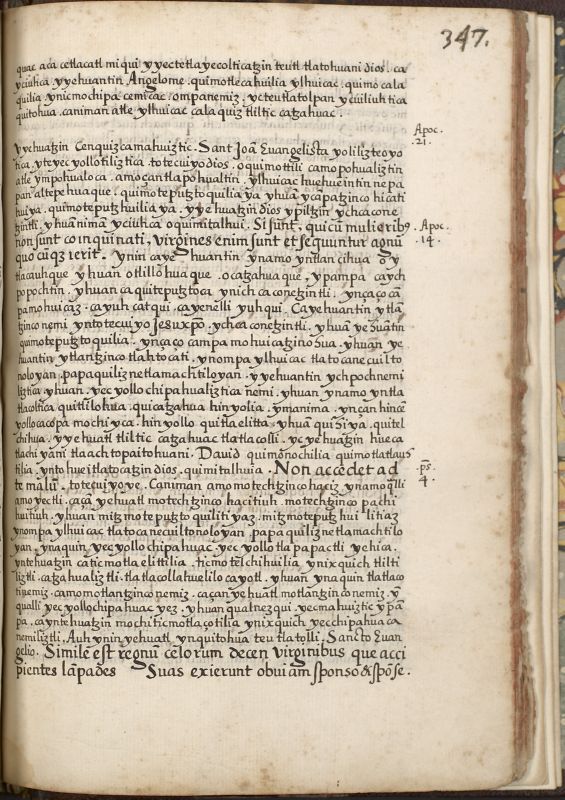 347.
quac aca cetlacatl miqui yyectetlayecolticatzin teutl tlatohuani dios . ca
yciuhca . yyehuantin Angelome . quimotlecahuilia ylhuicac . quimo cala
quilia . ynicmochipa cemicac . ompanemiz . ycteutlatolpan yciuiliuhtica
quitohua . caniman atle ylhuicac calaquiz tliltic catzahuac .
Apoc.
.21.
yyehuatzin Cenquizcamahuiztic . Sant Joā Euangelista yolilizteoyo
tica . yteyecyollotiliztica . totecuiyo dios . oquimottili camopohualiztin
atle ympohualoca . amo çantlapohualtin . ylhuicac huehueintin nepa
pan altepehuaque . quimoteputztoquiliaya . yhuā ycāpatzinco hicati
huiya . quimoteputzhuilia ya . yyehuatzin dios ypiltzin ychcacone
tzintli . yhuā nimā yciuhca oquimitalhui . Si sunt, qui cū mulieribꝰ
Apoc.
.14.
non sunt coinquinati, virgines enim sunt et sequuntur agnū
quocūqz ierit . ynin cayehuantin ynamo yntlan cihua
tlacauhque . yhuan otlillo huaque . ocatzahuaque , ypampa caych
popochtin . yhuan caquiteputztoca ynichcaconetzintli . ynçaço cā
pamohuicaz . cayuhcatqui . cayenelli yuhqui . Cayehuantin ytlā
tzinco nemi yntotecuiyo Jesu xpō . ychcaconetzintli . yhuā yehuātin
quimoteputztoquilia . ynçaço campa mohuicatzinohua . yhuan ye
huantin ytlantzinco tlahtocati . ynompa ylhuicac tlatocanecuilto
noloyan . papaquiliznetlamachtiloyan . yyehuantin ychpochnemi
liztica . yhuan . yecyollochipahualiztica nemi . yhuan ynamo yntla
tlacoltica quitlilohua . quicatzahua hinyolia . ynmanima . ynçan hincē
yollocacopa mochi yca . hinyollo quitlaelitta . yhuā quihiya . quitel
chihua . yyehuatl tliltic catzahuac tlatlacolli . ycyehuatzin hueca
tlachiyani tlaachtopaitohuani . David quimonochilia quimotlatlauh
tilia . ynto hueitlatocatzin dios . quimitalhuia . Non accedet ad
.ps̄
4.
te malū . totecuiyoye . Caniman amo motechtzinco haciz ynamoqlli
amoyectli . caçā yehuatl motechtzinco hacitiuh motechtzinco pachi
huitiuh . yhuan mitzmoteputztoquilitiyaz . mitzmoteputzhuilitiaz
ynompa ylhuicac tlatocanecuiltonoloyan . papaquiliznetlamachtilo
yan . ynaquin yecyollochipahuac . yecyollotlapapactli yehica .
yntehuatzin caticmotlaelittilia . ticmotelchihuilia ynixquich tlilti
liztli . catzahualiztli . tlatlacollahuelilocayotl . yhuan ynaquin tlatlaco
tinemiz . camo motlantzinco nemiz . caçan yehuatl motlantzinco nemiz . y
qualli yecyollochipahuac yez . yhuan qualnezqui . yecmahuiztic ypā
pa . cayntehuatzin mochi ticmotlaçotilia ynixquich yecchipahuaca
nemiliztli . Auh ynin yehuatl ynquitohua teutlatolli . Sancto Euan
gelio . Simile est regnū celorum decen virginibus que acci
pientes lāpades Suas exierunt obuiam sponso & spōse .